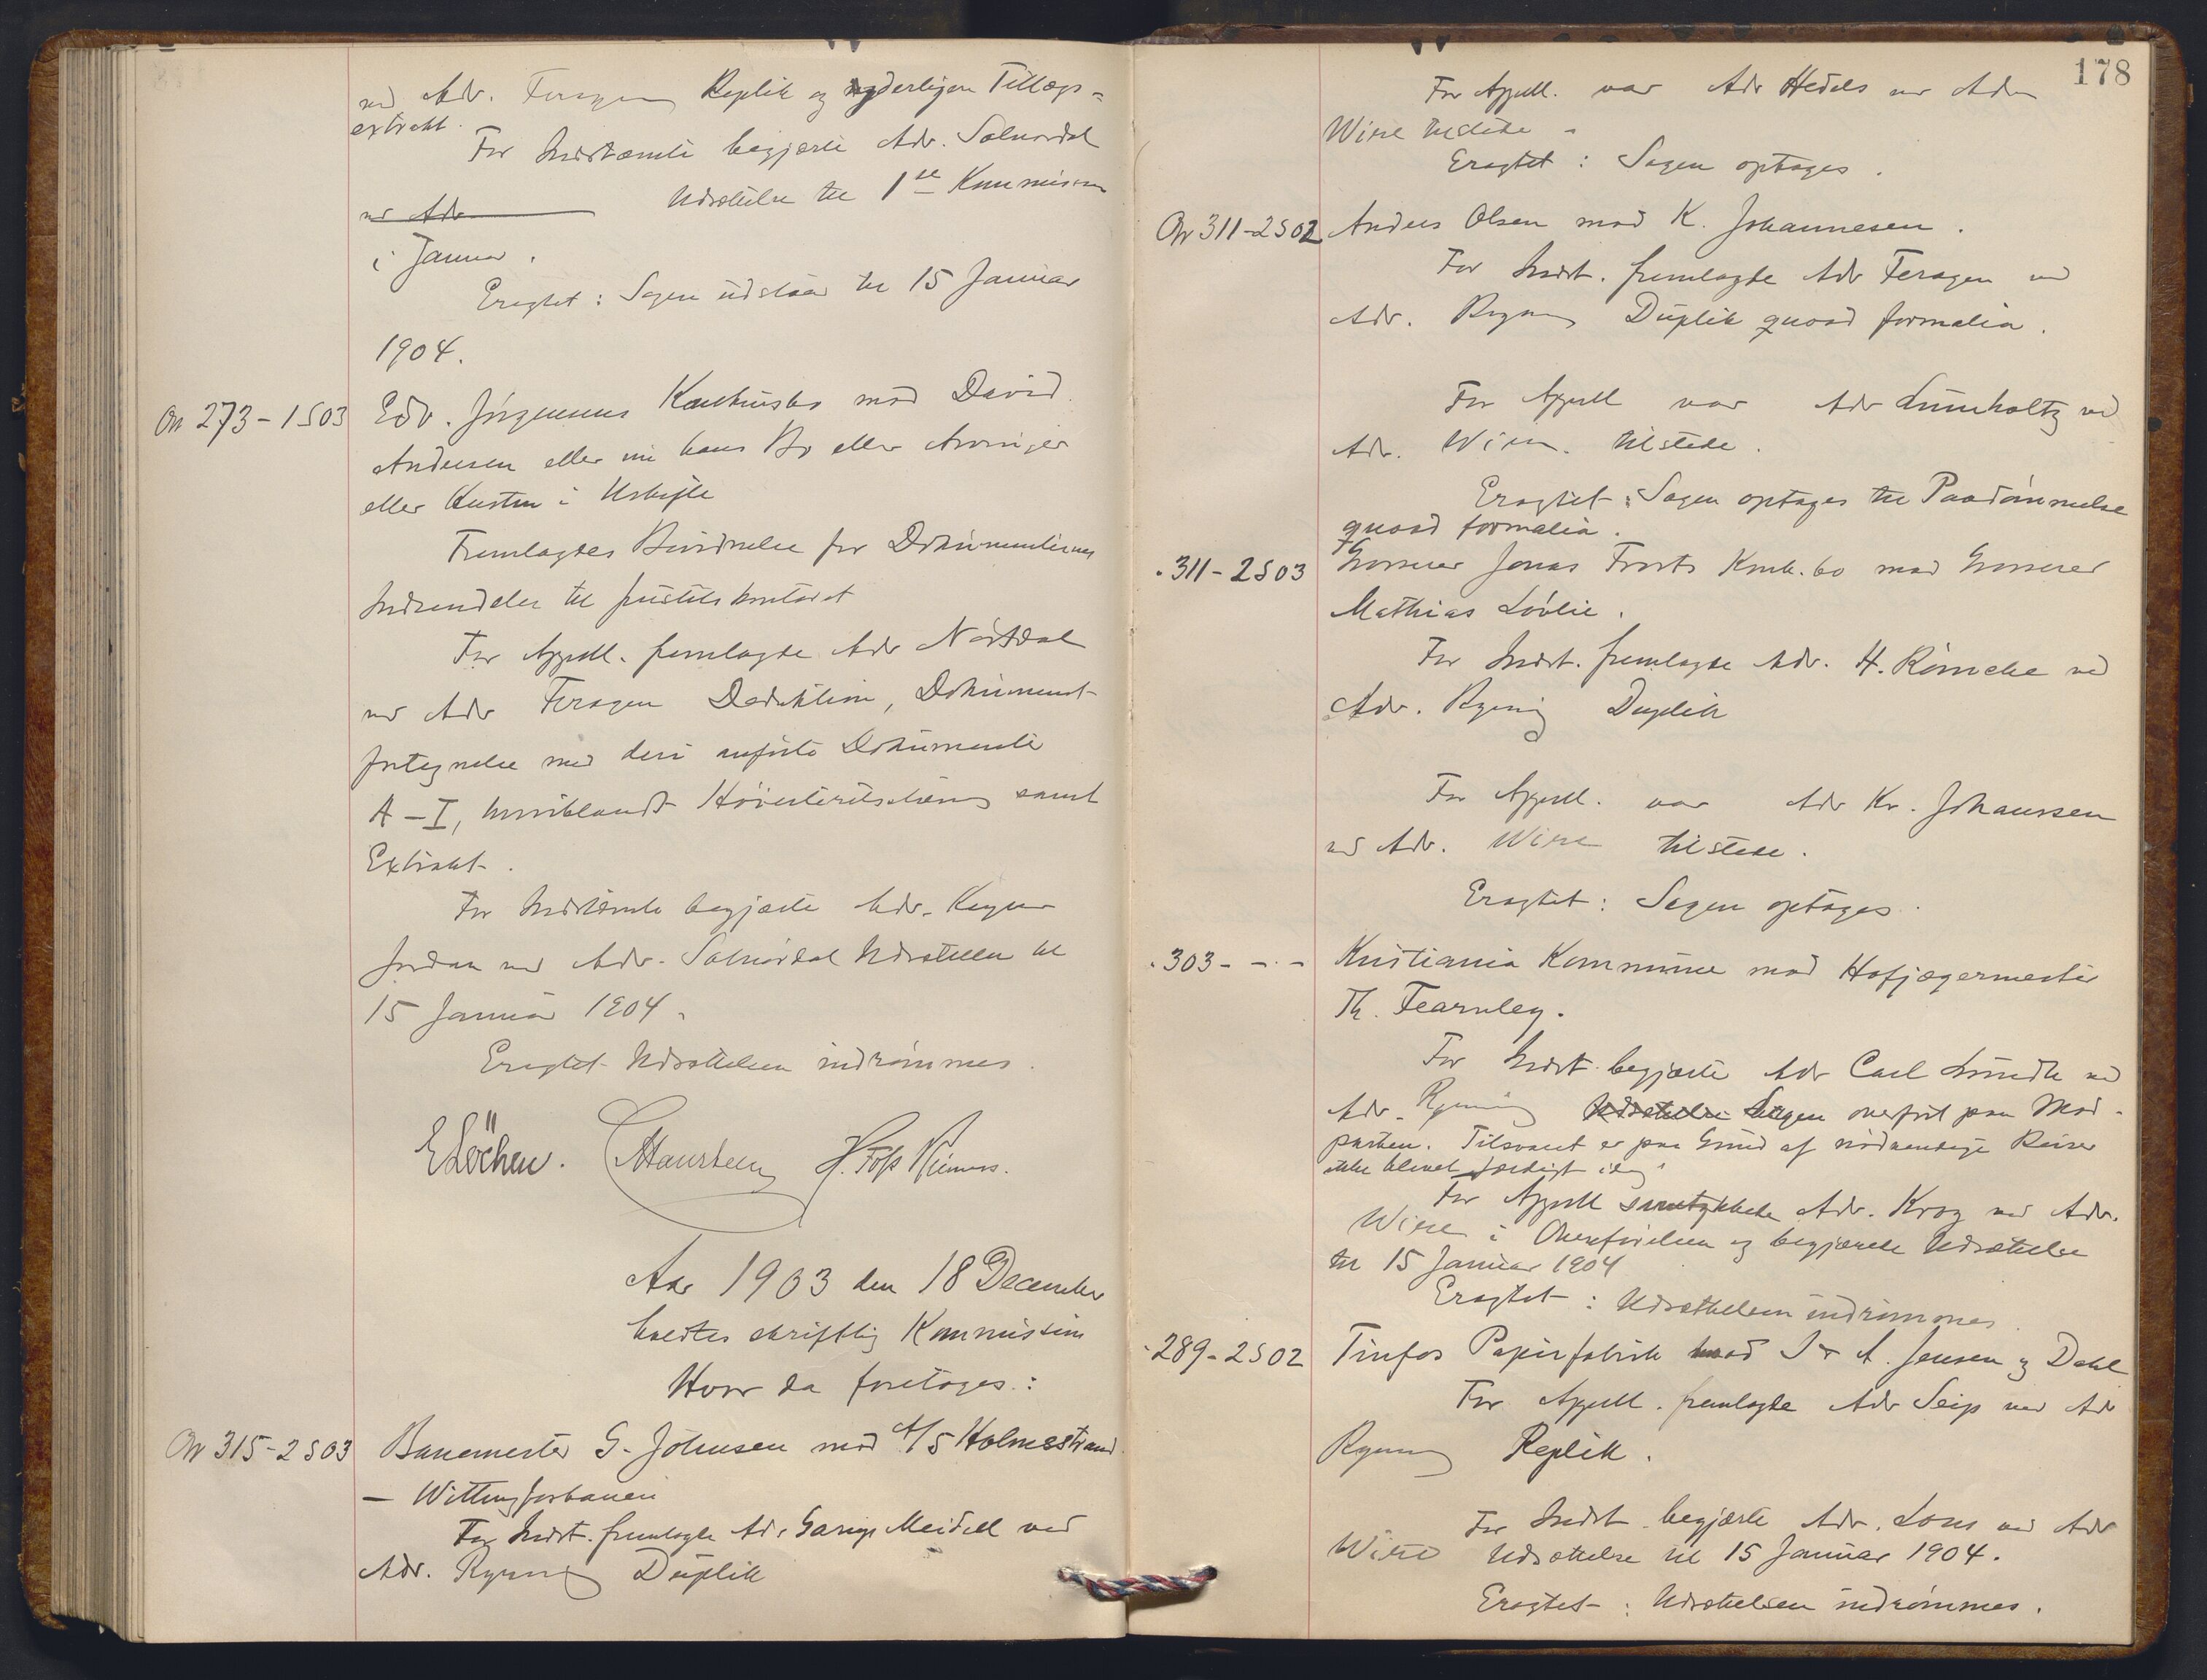 ved Adv. Feragen Replik og yderligere Tillægs-
extrakt.
For Indstævnte begjærte Adv. Solnørdal
ved Adv. Udsættelse til 1ste Kommission
i Januar.
Eragtet: Sagen udstaar til 15 Januar
1904.
On 273-1S03 Edv. Jørgensens Konkursbo mod David
Andersen eller nu hans Bo eller Arvinger
eller Kusten i
Fremlagdes Bevidnelse for Dokumenternes
Indsendelse til Justitskontoret
For Appell. fremlagde Adv Nørdal
ved Adv Feragen Deduktion, Dokument-
fortegnelse med deri anførte Dokumenter
A-I, hvoriblandt Høiesteretsstævning samt
Extrakt.
For Indstævnte begjærte Adv.
Jordan ved Adv. Solnørdal Udsættelse til
15 Januar 1904.
Eragtet Udsættelsen indrømmes.
E Løchen. Hansteen H. Foss
Aar 1903 den 18 December
holdtes skriftlig Kommission
Hvor da foretoges:
On 315-2S03 Banemester G. Johnsen mod A/S Holmestrand
- Wittingfosbanen
For Indst. fremlagde Adv. Meidell ved
Adv. Ryning Duplik
178
For Appell. var Adv Hedels ved Adv
Wiese tilstede.
Eragtet: Sagen optages.
On 311-2S02 Anders Olsen mod K. Johannesen.
For Indst. fremlagde Adv Feragen ved
Adv. Ryning Duplik quoad formalia.
For Appell var Adv Lumholtz ved
Adv. Wiese tilstede.
Eragtet: Sagen optages til Paadømmelse
quoad formalia.
" 311-2S03 Grosserer Jonas Frosts Konk.bo mod Grosserer
Mathias Løvlie.
For Indst. fremlagde Adv. H. Rømcke ved
Adv. Ryning Duplik
For Appell. var Adv Kr. Johanssen
ved Adv. Wiese tilstede.
Eragtet: Sagen optages.
" 303 - - " - Kristiania Kommune mod Hofjægermester
Th. Fearnley.
For Indst. begjærte Adv Carl Lundh ved
Adv. Ryning Udsættelse Sagen overført paa Mod-
parten. Tilsvaret er paa Grund af nødvendige Reiser
ikke blevet færdigt idag
For Appell samtykkede Adv. Krog ved Adv.
Wiese i Overførelsen og begjærede Udsættelse
til 15 Januar 1904
Eragtet: Udsættelsen indrømmes.
" 289-2S02 Tinfos Papirfabrik mod I & A. Jensen og Dahl
For Appell. fremlagde Adv Seip ved Adv
Ryning Replik.
For Indst. begjærte Adv. Lous ved Adv
Wiese Udsættelse til 15 Januar 1904.
Eragtet: Udsættelsen indrømmes.